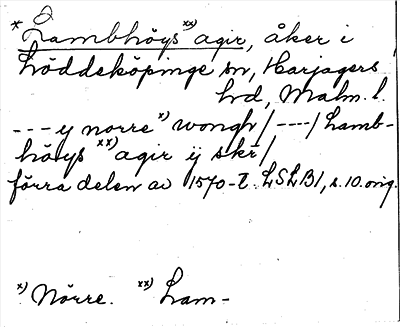 * Lambhöys xx) agir, åker i
Löddeköpinge sn, Harjagers
hd, Malm. l.
--- ÿ norre x) wongh / ---- / Lamb-
höÿs xx) agir ÿ skr /
förra delen av 1570-t. LSLB1, s. 10. orig.
x) Nörre. xx) Lam-